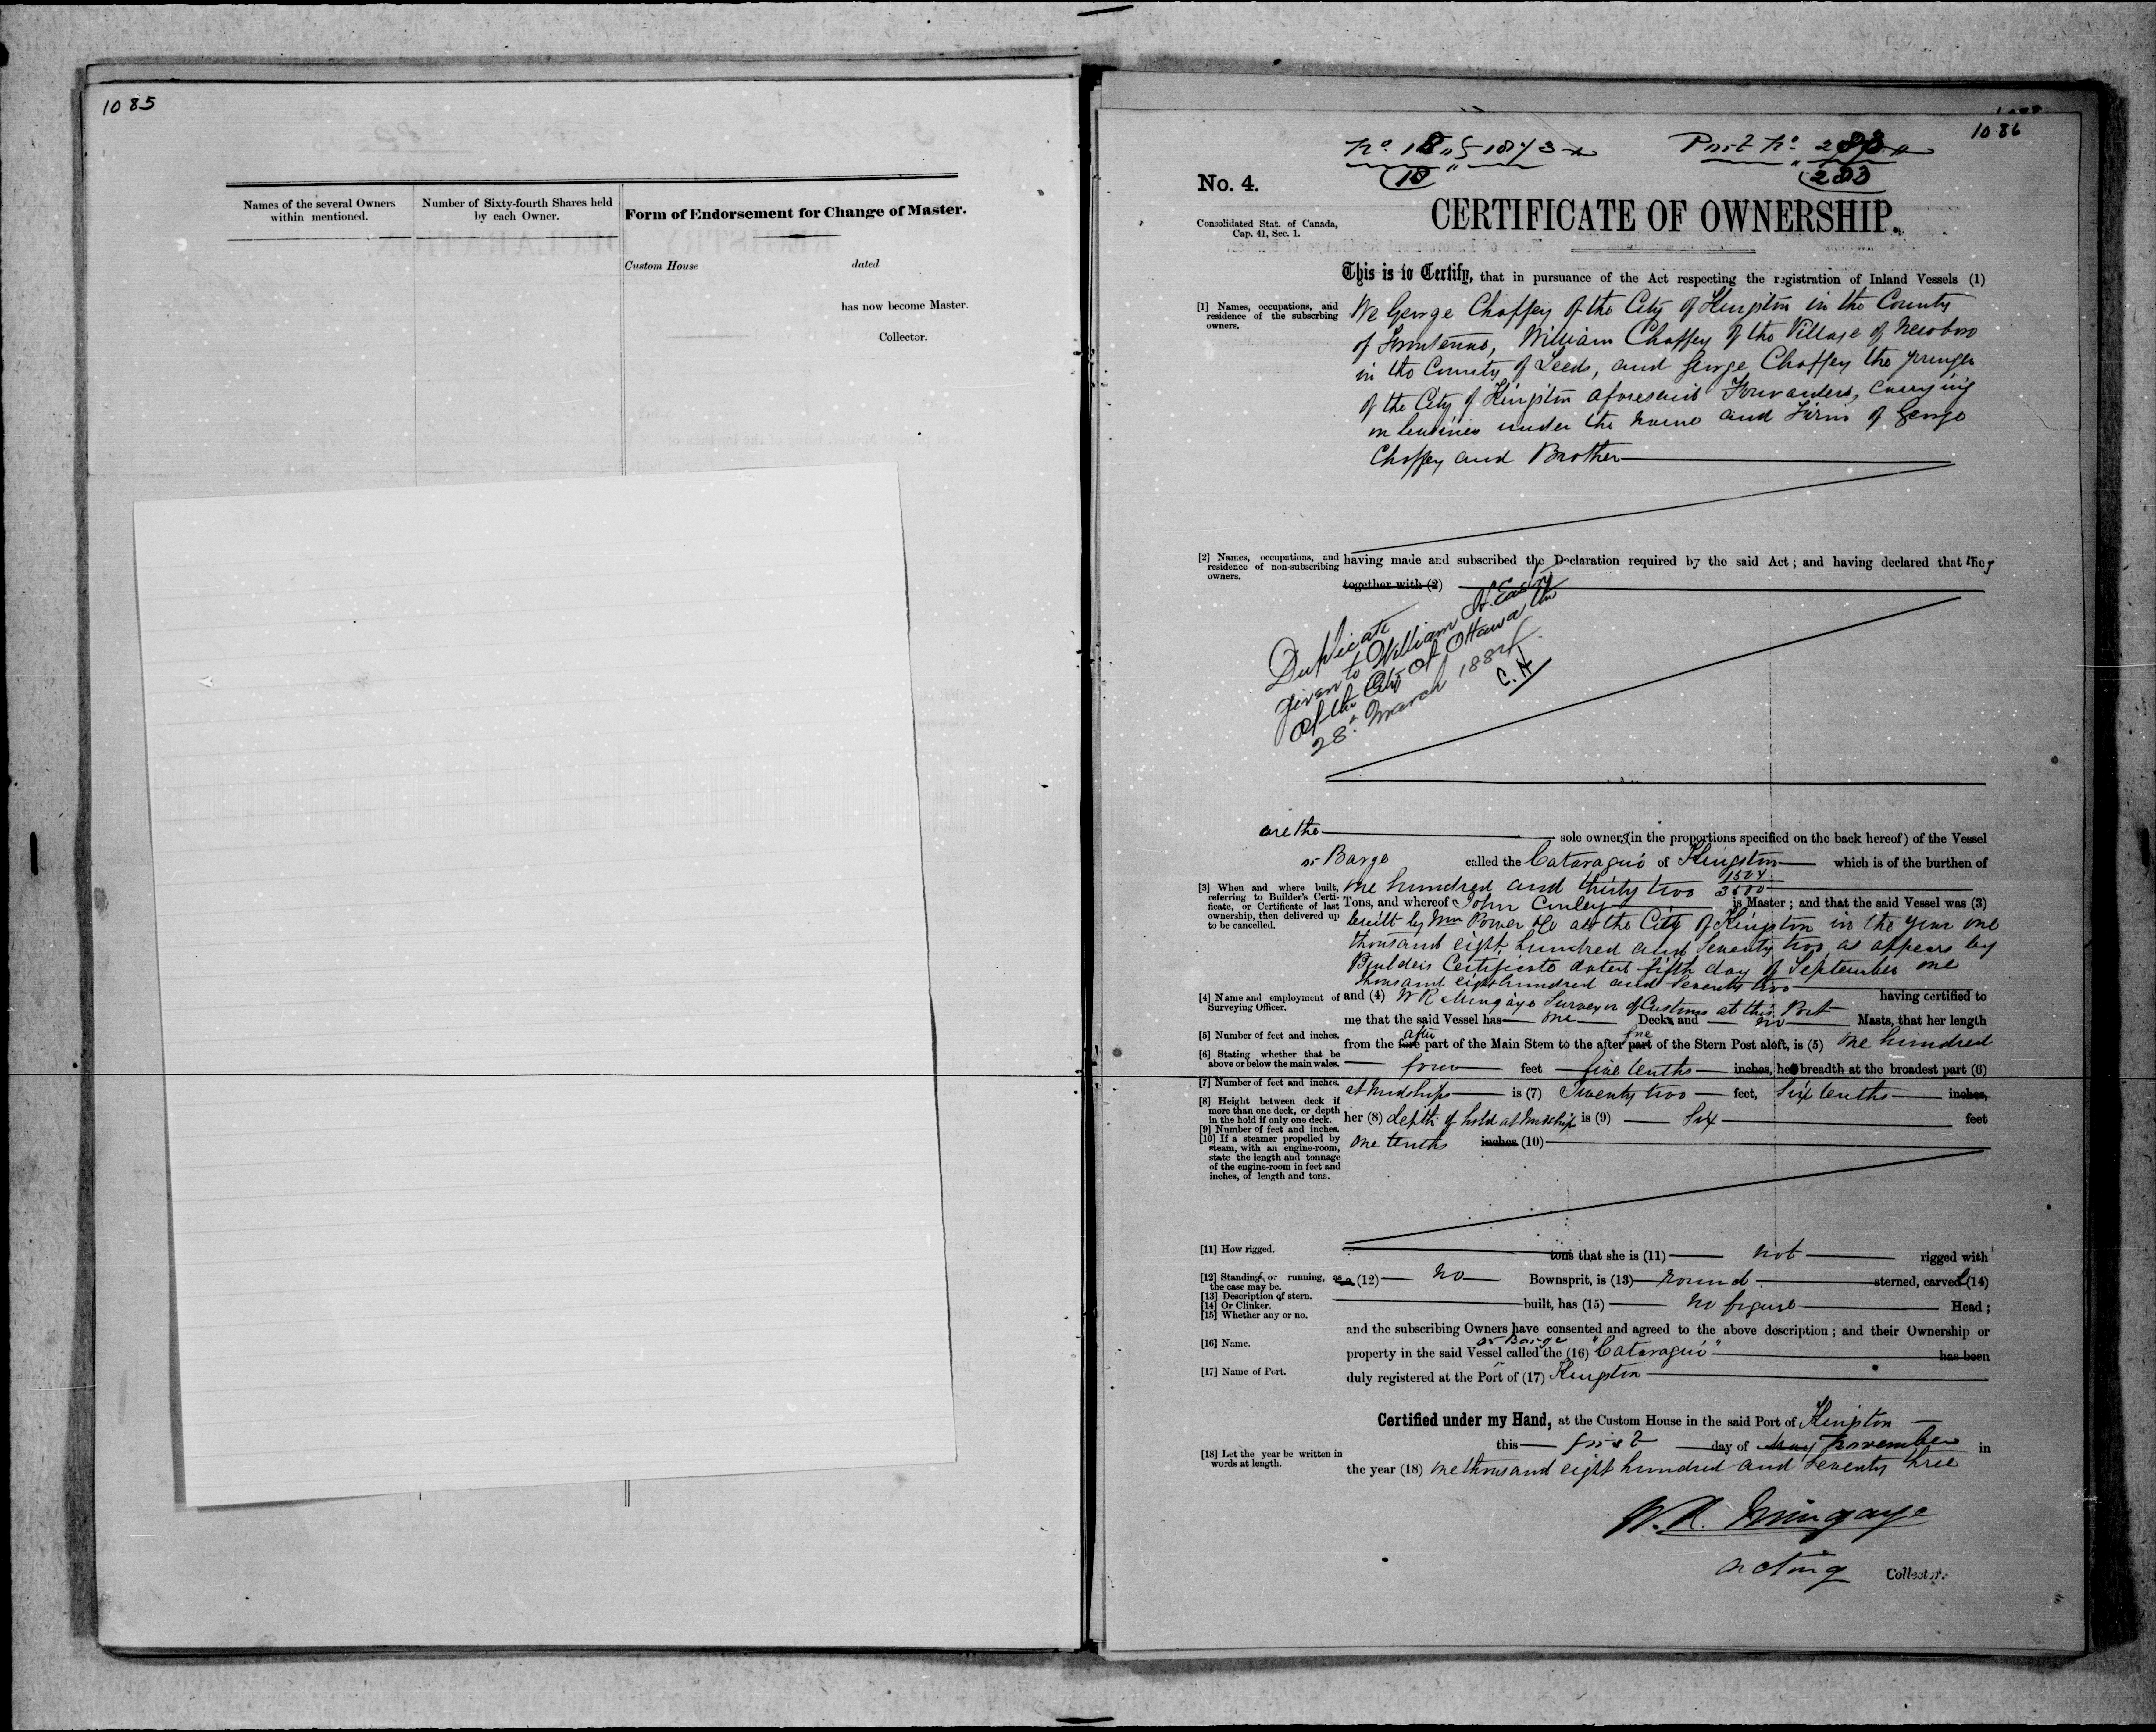 1085
Names of the several Owners
within mentioned.
Number of Sixty-fourth Shares held
by each Owner.
Form of Endorsement for Change of Master.
Custom House dated
has now become Master.
Collector.
1086
Port No.
No. 4.
Consolidated Stat. of Canada,
Cap. 41, Sec. 1.
CERTIFICATE OF OWNERSHIP.
This is to Certify, that in pursuance of the Act respecting the registration of Inland Vessels (1)
[1] Names, occupations, and
residence of the subscrbing
owners.
We George Chaffey of the City of Kingston in the County
of Frontenac, William Chaffey of the Village of Newboro
in the County of Leeds, and George Chaffey the younger
of the City of Kingston aforesaid Forwarders, carrying
on business under the name and Firm of George
Chaffey and Brother
[2] Names, occupations, and
residence of non-subscribing
owners.
having made and subscribed the Declaration required by the said Act; and having declared that they
together with (2)
Duplicate
given to William
of the City of Ottawa this
28th March 1884
C. H
are the sole owners in the proportions specified on the back hereof) of the Vessel
or Barge called the Cataraqui of Kingston which is of the burthen of
[3] When and where built,
referring to Builder's Certi-
ficate, or Certificate of last
ownership, then delivered up
to be cancelled.
one hundred and thirty two 1504/3600
Tons, and whereof John Conley is Master; and that the said Vessel was (3)
built by Wm Power &Co at the City of Kingston in the year one
thousand eight hundred and seventy two, as appears by
Builders Certificate dated fifth day of September one
thousand eight hundred and seventy two
[4] Name and employment of
Surveying Officer.
and (4) W R Mingaye Surveyor of Customs at this Port having certified to
me that the said Vessel has one Decks and no Masts, that her length
[5] Number of feet and inches.
after fore
from the fore part of the Main Stem to the after part of the Stern Post aloft, is (5) One hundred
[6] Stating whether that be
above or below the main wales.
four feet five tenths inches, her breadth at the broadest part (6)
[7] Number of feet and inches.
at midships is (7) Twenty two feet, Six tenths inches,
[8] Height between deck if
more than one deck, or depth
in the hold if only one deck.
her (8) depth of hold at midships is (9) Six feet
[9] Number of feet and inches.
[10] If a steamer propelled by
steam, with an engine-room,
state the length and tonnage
of the engine-room in feet and
inches, of length and tons.
one tenths inches (10)
[11] How rigged.
tons that she is (11) not rigged with
[12] Standing, or running, as
the case may be.
a (12) no Bownsprit, is (13) round sterned, carvel (14)
[13] Description of stern.
[14] Or Clinker.
[15] Whether any or no.
built, has (15) no figure Head;
and the subscribing Owners have consented and agreed to the above description; and their Ownership or
[16] Name.
or Barge
property in the said Vessel called the (16) "Cataraqui" has been
[17] Name of Port.
duly registered at the Port of (17) Kingston
Certified under my Hand, at the Custom House in the said Port of Kingston
this first day of May November in
[18] Let the year be written in
words at length.
the year (18) one thousand eight hundred and seventy three
W. R. Mingaye
acting Collector.